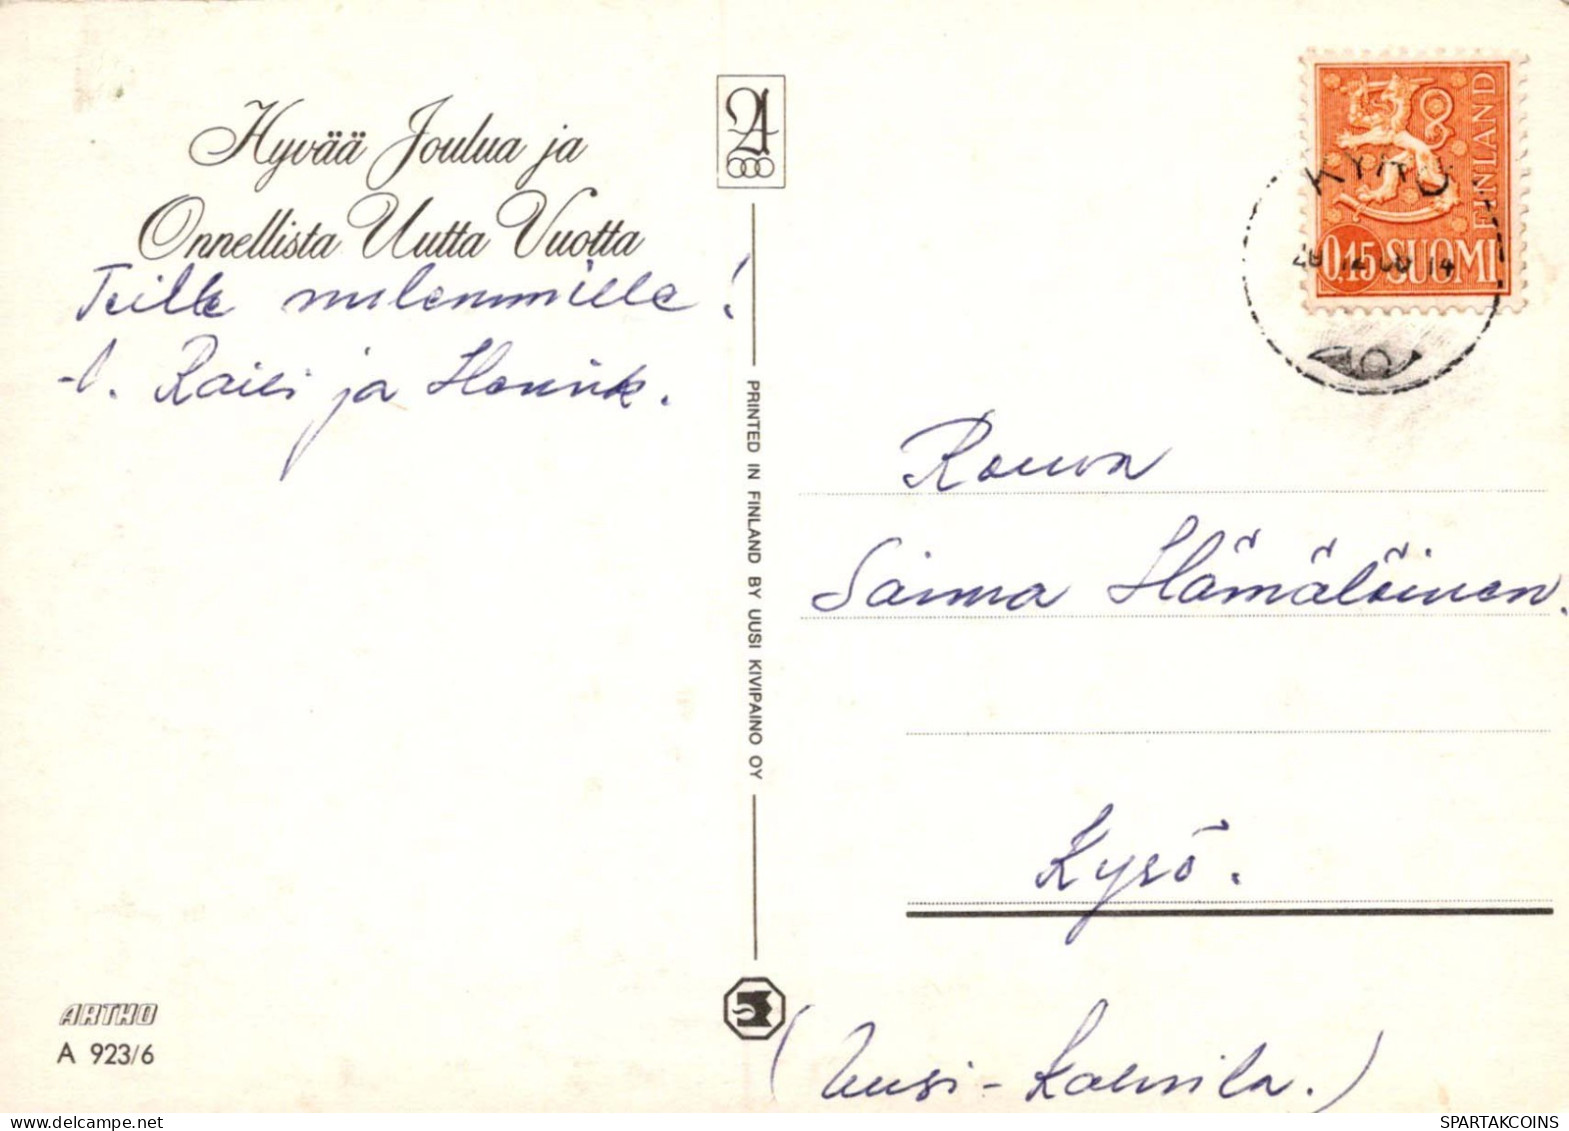 Hyvää Joulua ja
Onnellista Uutta Vuotta
Teille molemmille!
-l. Raili ja Henrik.
PRINTED IN FINLAND BY UUSI KIVIPAINO OY
ARTKO
A 923/6
KYRÖ
FINLAND
0,45 SUOMI
Rouva
Saima Hämäläinen.
Kyrö.
(Uusi-Kalevila.)
SPARTAKCOINS
SPARTAKCOINS.COM